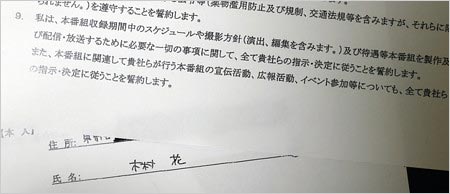 られません。)を遵守することを誓約します。
9. 私は、本番組収録期間中のスケジュールや撮影方針(演出、編集を含みます。)及び待遇等本番組を製作及
び配信・放送するために必要な一切の事項に関して、全て貴社らの指示・決定に従うことを誓約します。
また、本番組に関連して貴社らが行う本番組の宣伝活動、広報活動、イベント参加等についても、全て貴社ら
の指示・決定に従うことを誓約します。
【本 人】
住 所:
氏 名: 木村 花